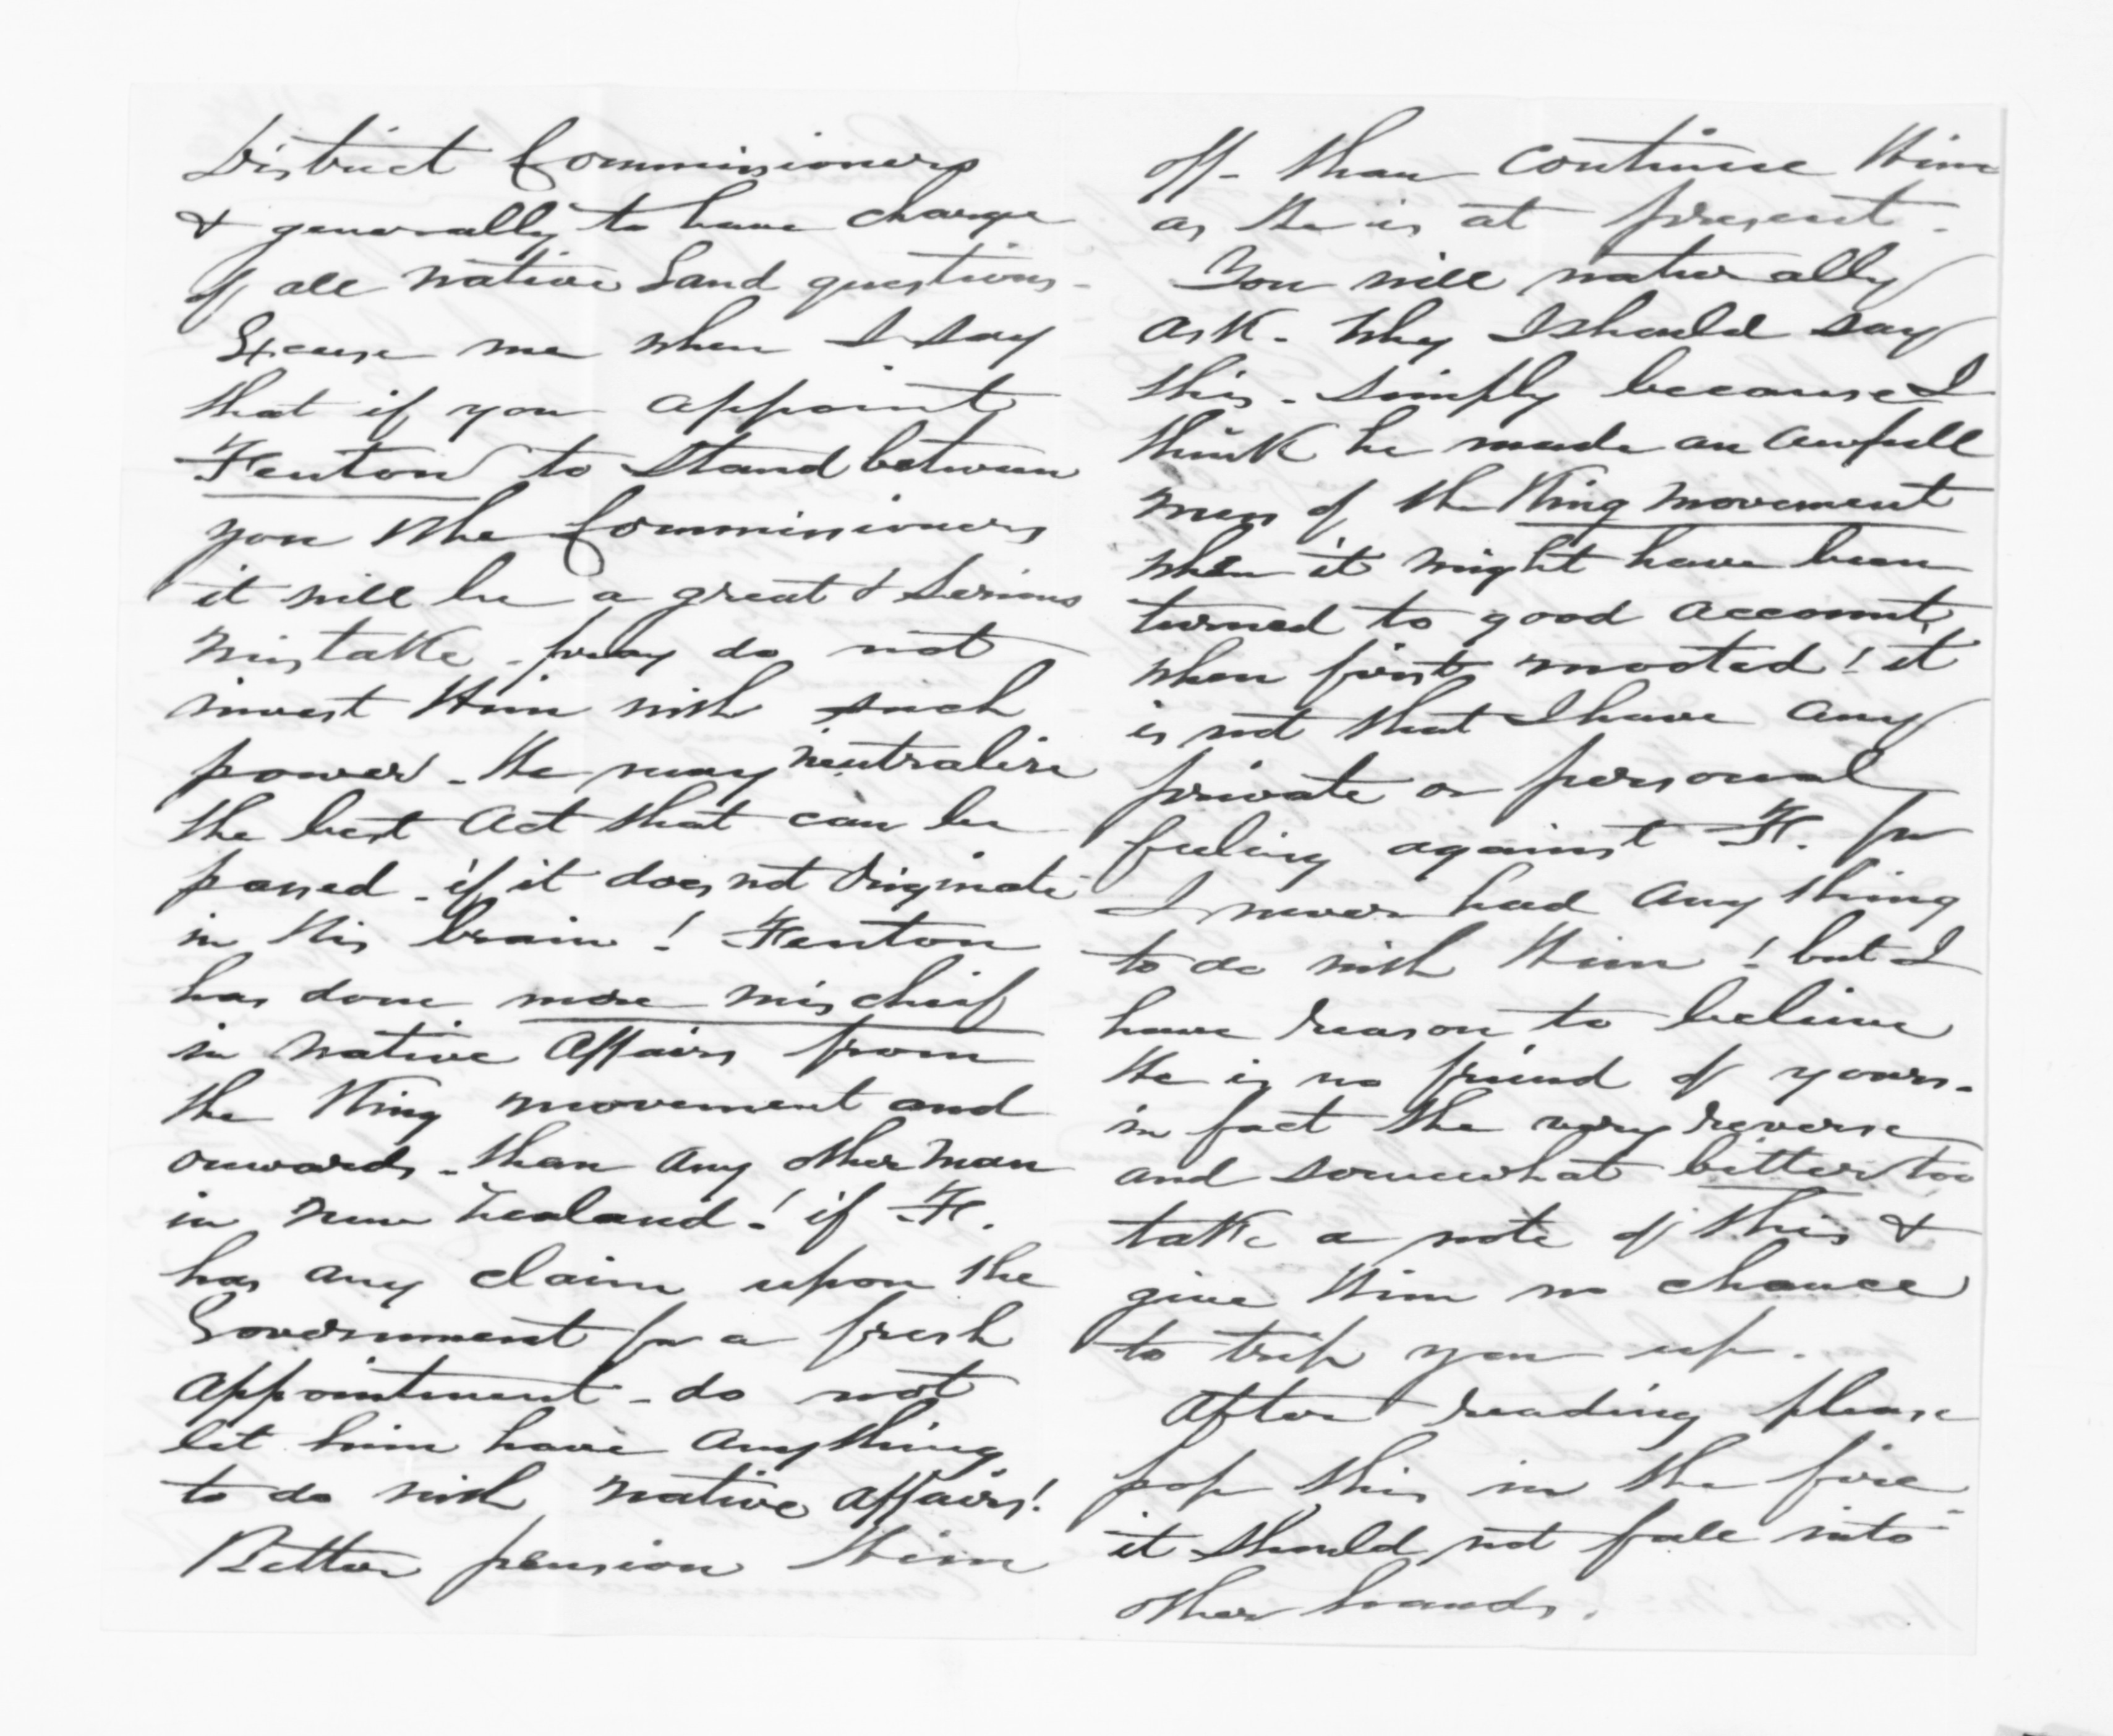 District Commissioners
& generally to have charge
of all native Land questions -
Excuse me when I say
that if you appoint
Fenton to stand between
you & the Commissioners
it will be a great & serious
mistake - pray do not
invest Him with such
power - He may neutralise
the best Act that can be
passed - if it does not originate
in His brain! Fenton
has done more mischief
in native Affairs from
the King movement and
onwards - than any other man
in New Zealand! if F.
has any claim upon the
Government for a fresh
appointment - do not
let him have anything
to do with native affairs!
Better pension Him
off - than continue Him
as He is at present -
You will naturally
ask - Why I should say
this - simply because I
think he made an awfull
mess of the King movement
when it might have been
turned to good account,
when first mooted! it
is not that I have any
private or personal
feeling against F. for
I never had any thing
to do with Him! but I
have reason to believe
He is no friend of yours -
in fact the very reverse
and somewhat bitter too
take a note of this &
give Him no chance
to trip you up.
After reading please
pop this in the fire -
it should not fall into
other hands.